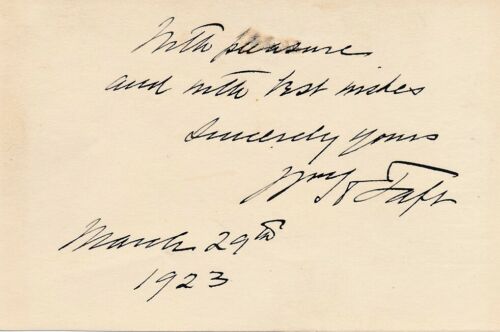 With pleasure
and with best wishes
Sincerely yours
Wm H Taft
March 29th
1923